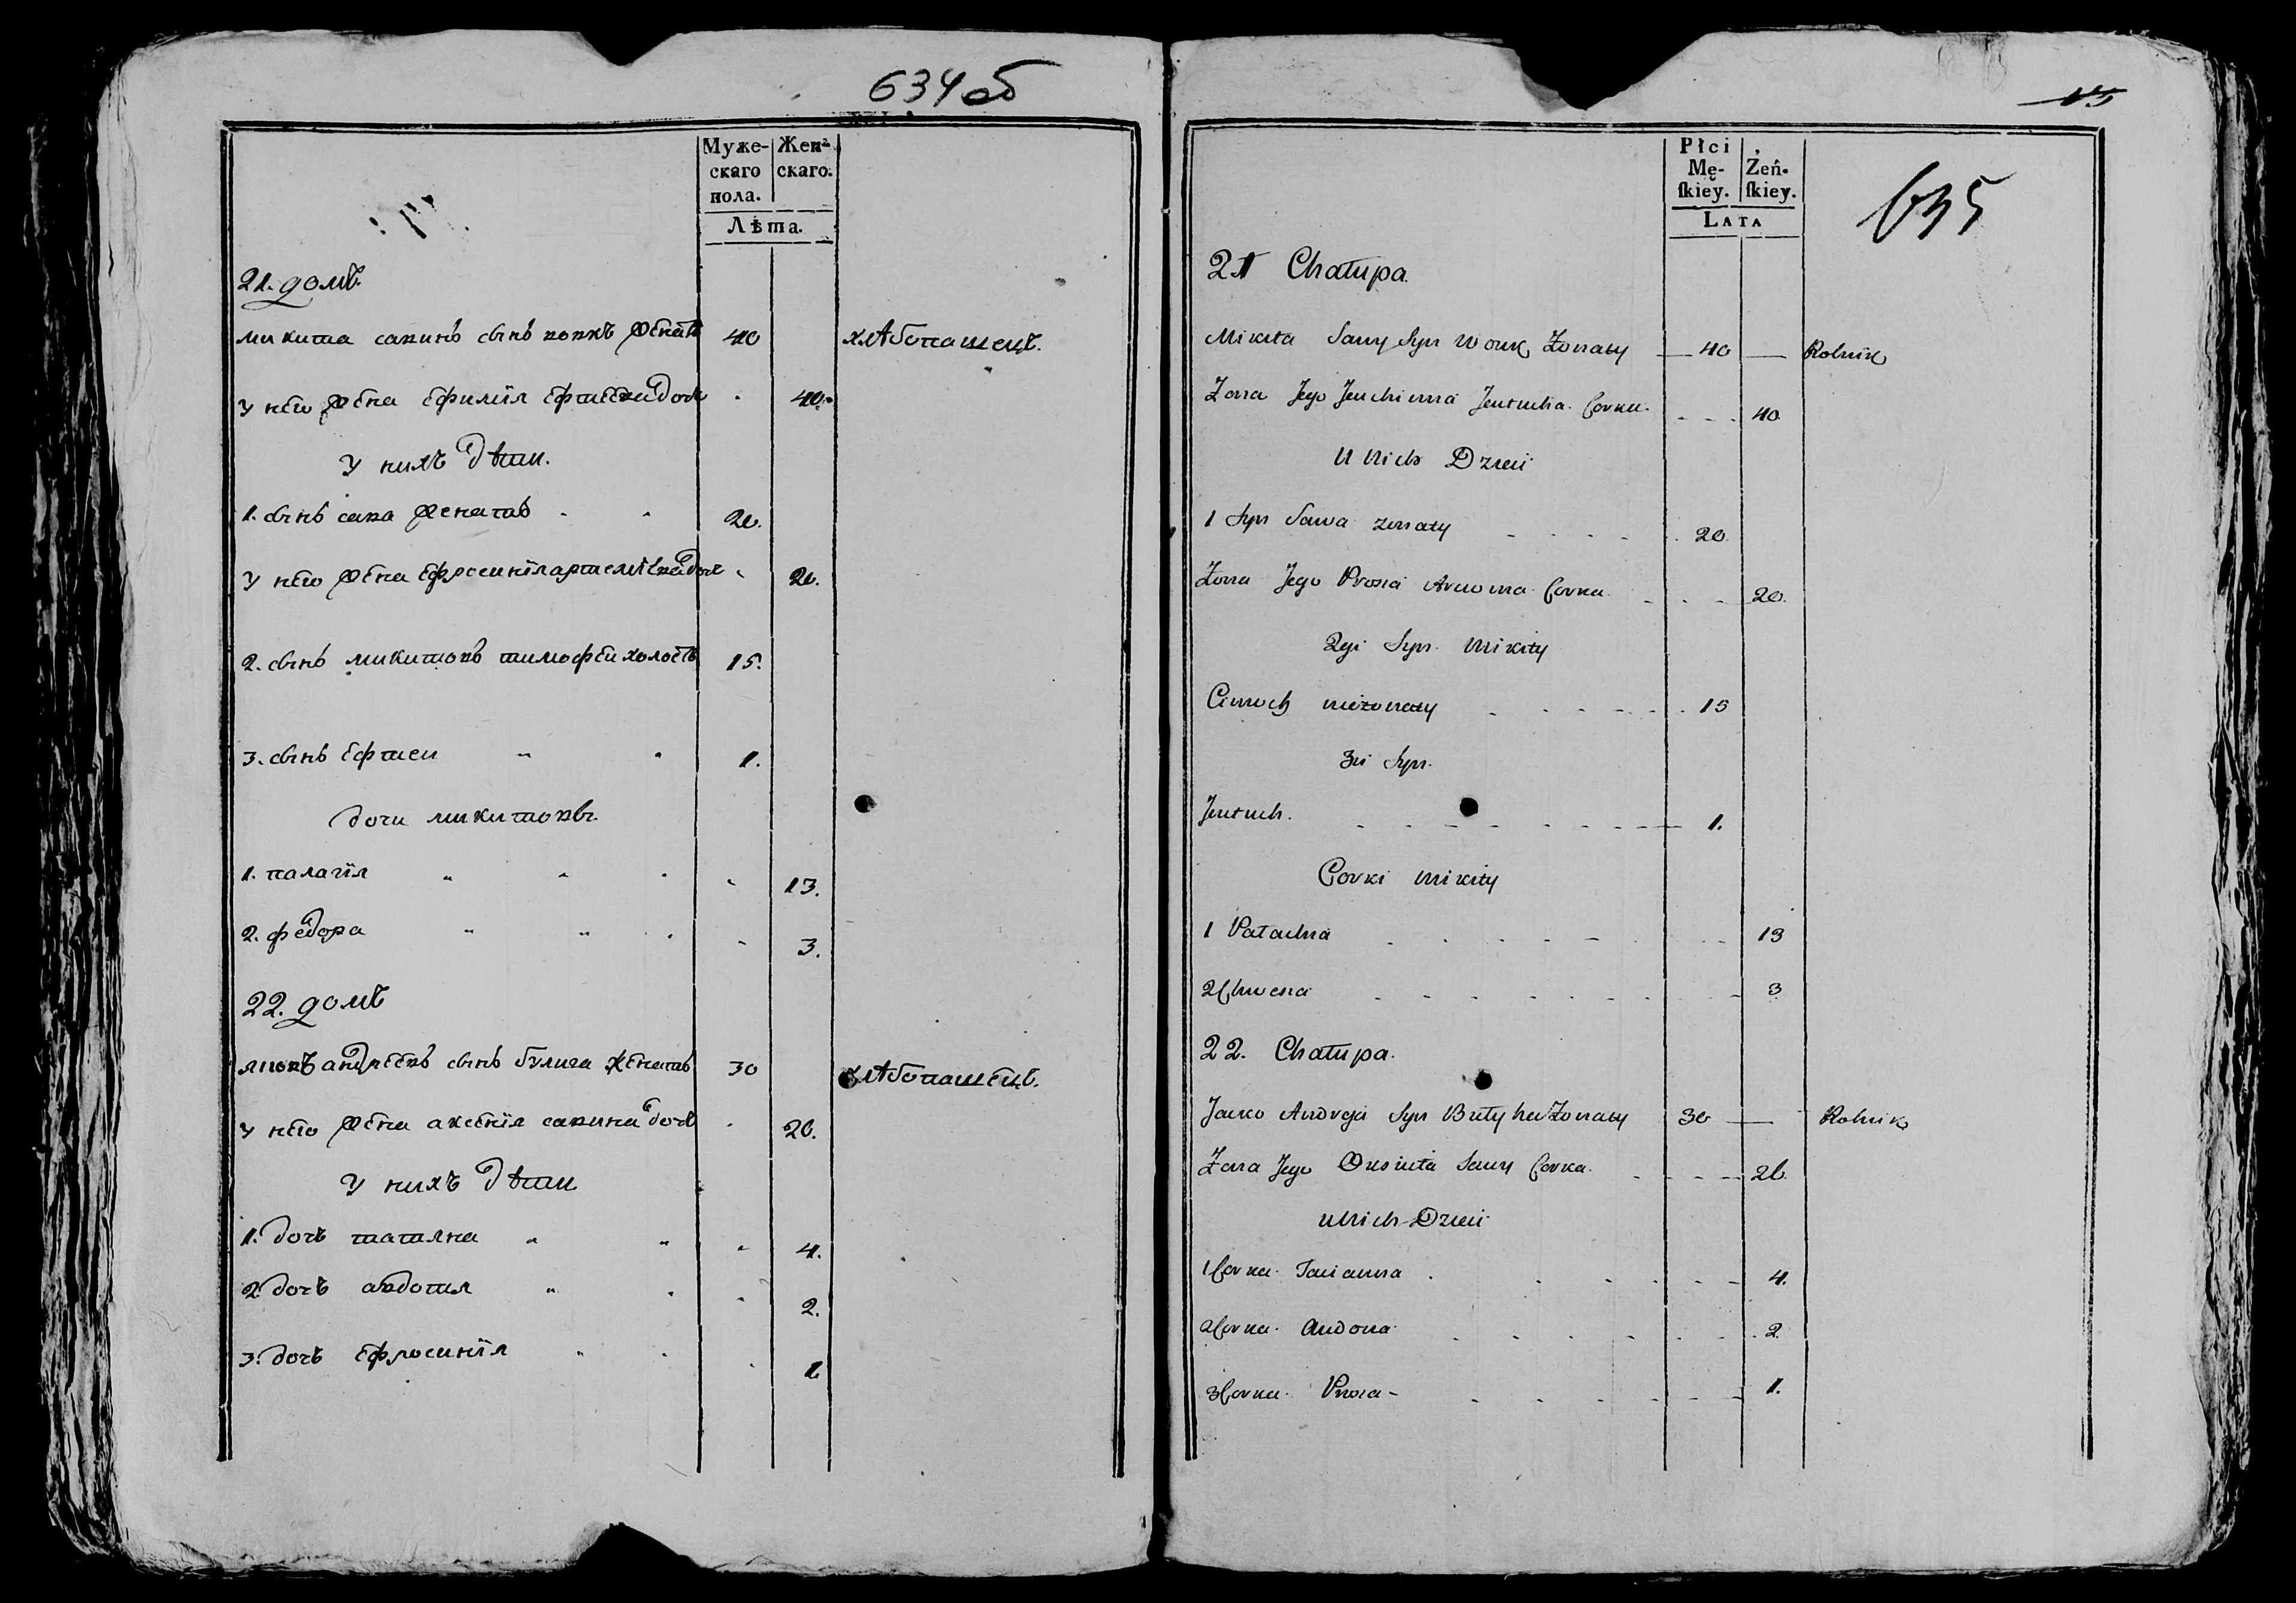 634 об
Муже-
скаго
пола.
Жен-
скаго.
Лѣта.
21. домъ.
микита савинъ сынъ вовкъ женатъ 40 хлѣбопашецъ.
у него жена ефимія ефтеева дочь 40.
у нихъ дѣти.
1. сынъ сава женатъ 20.
у него жена ефросинія артемѣева дочь 20.
2. сынъ микитовъ тимофеи холостъ 15.
3. сынъ ефтеи 1.
дочи микитовы.
1. палагія 13.
2. федора 3.
22. домъ
андреевъ сынъ булыга женатъ 30 хлѣбопашецъ.
у него жена аксенія савина дочь 26.
у нихъ дѣти
1. дочь татяна 4.
2. дочь авдотя 2.
3. дочь ефросинія 1.
15
Płci
Mę-
ſkiey.
Żeń-
ſkiey.
LATA
635
21 Chałupa.
Mikita Sawy Syn Wowk Żonaty 40 Rolnik
Żona Jego Jeuchimia Jeutucha Corka 40
U Nich Dzieci
1 Syn Sawa żonaty 20
Żona Jego Prosia Corka 20.
2gi Syn Mikity
Cimoch nieżonaty 15
3ci Syn.
Jeutuch. 1.
Corki Mikity
1 Pałachia 13
2 Chwiesia 3
22. Chałupa.
Jacko Andreja Syn Bułyha Żonaty 30 Rolnik
Żona Jego Sawy Corka 26.
U Nich Dzieci
1 Corka Tacianna 4.
2 Corka Audocia 2.
3 Corka Prosia 1.